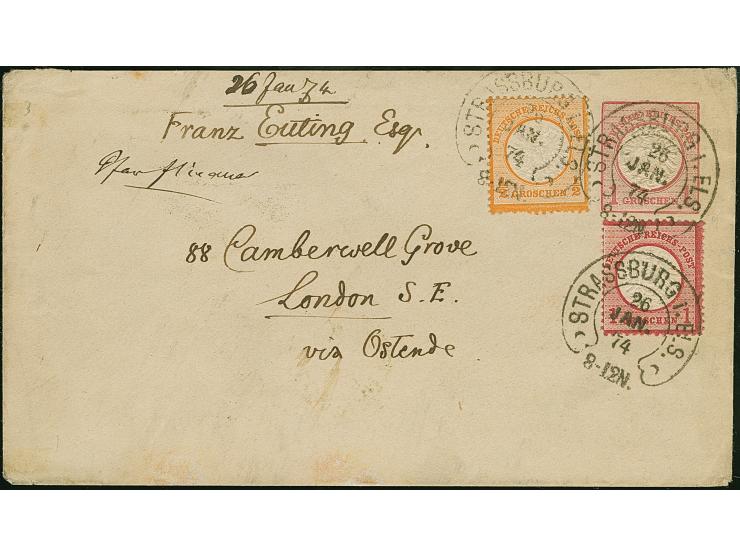 26 Jan 74
Franz Euting Esq.
88 Camberwell Grove
London S. E.
via Ostende
3
STRASSBURG I. ELS.
JAN.
74
8-12N.
DEUTSCHE REICHS-POST
1/2 GROSCHEN 1/2
STRASSBURG I. ELS.
26
JAN.
74
8-12N.
GROSCHEN
DEUTSCHE REICHS-POST
GROSCHEN 1
STRASSBURG I. ELS.
26
JAN.
74
8-12N.